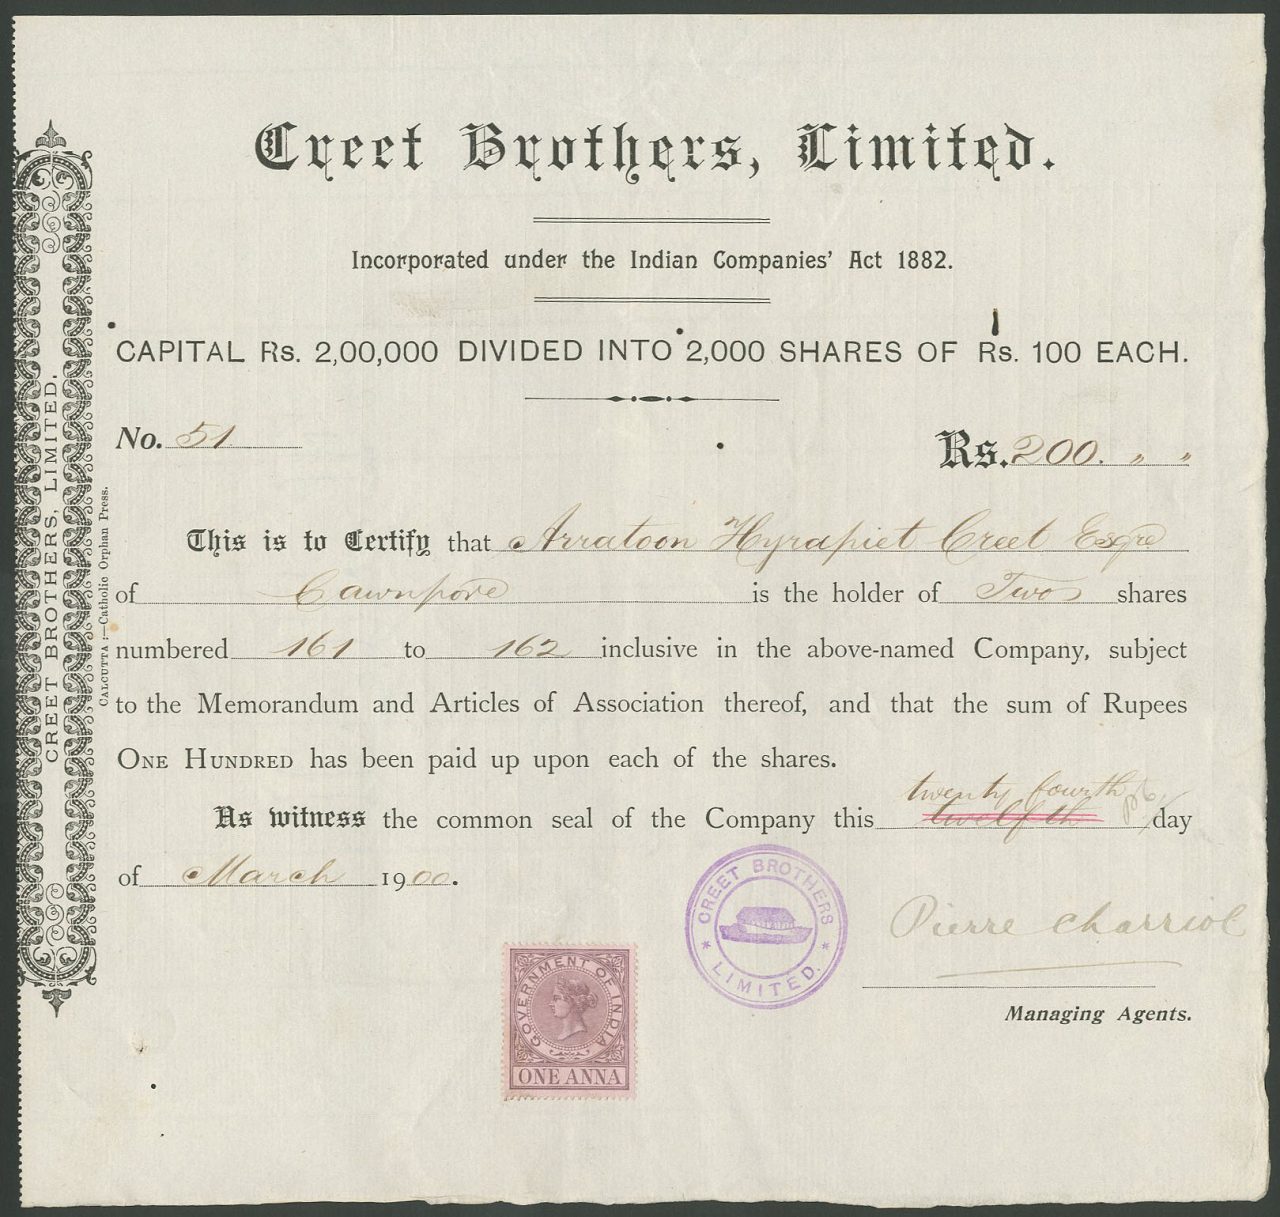 Creet Brothers, Limited.
Incorporated under the Indian Companies' Act 1882.
CAPITAL Rs. 2,00,000 DIVIDED INTO 2,000 SHARES OF Rs. 100 EACH.
No. 51
Rs. 200. " "
This is to Certify that Arratoon Hyrapiet Creet Esqre
of Cawnpore is the holder of Two shares
numbered 161 to 162 inclusive in the above-named Company, subject
to the Memorandum and Articles of Association thereof, and that the sum of Rupees
ONE HUNDRED has been paid up upon each of the shares.
twenty fourth
As witness the common seal of the Company this twelfth day
of March 1900.
CREET BROTHERS
LIMITED.
Pierre Charriol
Managing Agents.
GOVERNMENT OF INDIA
ONE ANNA
CREET BROTHERS, LIMITED.
CALCUTTA :—Catholic Orphan Press.